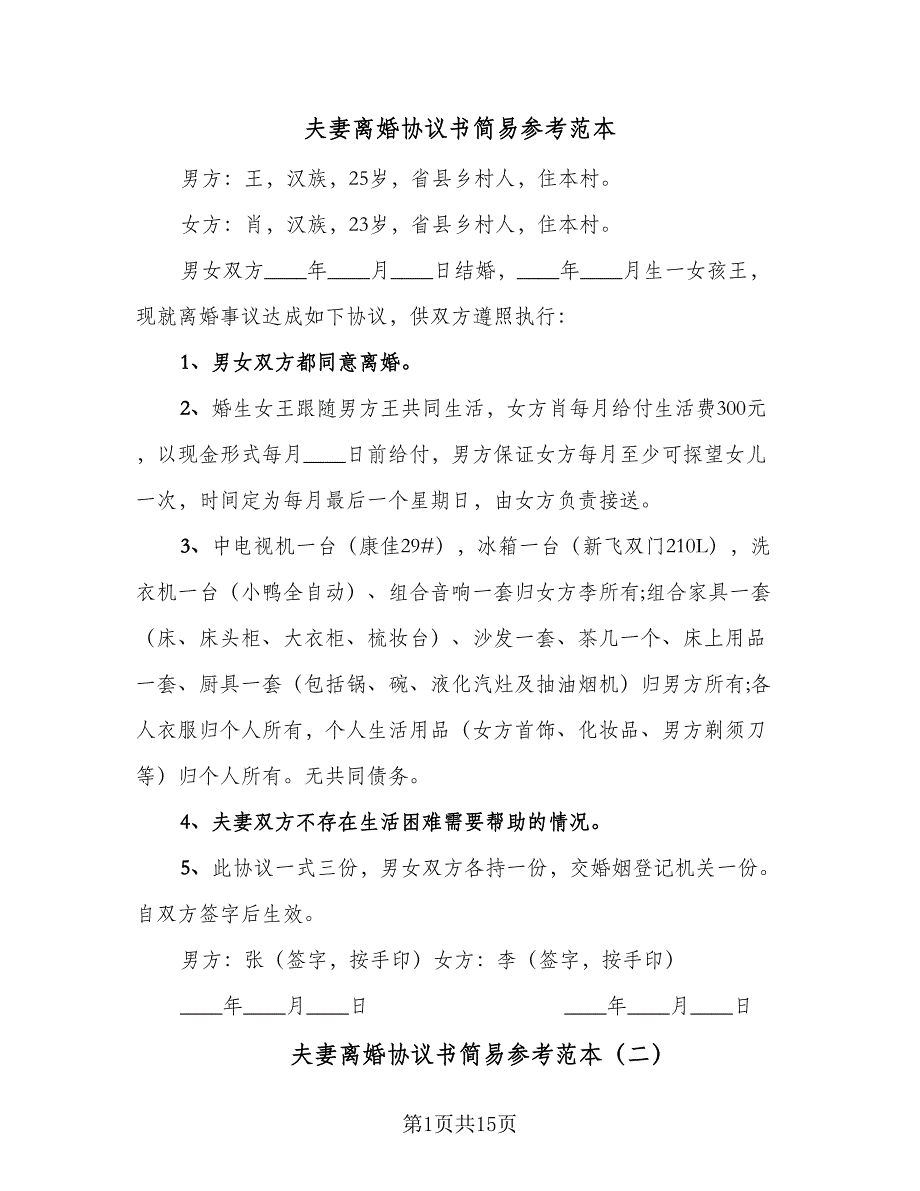 夫妻离婚协议书简易参考范本
男方：王，汉族，25岁，省县乡村人，住本村。
女方：肖，汉族，23岁，省县乡村人，住本村。
男女双方____年____月____日结婚，____年____月生一女孩王，
现就离婚事议达成如下协议，供双方遵照执行：
1、男女双方都同意离婚。
2、婚生女王跟随男方王共同生活，女方肖每月给付生活费300元
，以现金形式每月____日前给付，男方保证女方每月至少可探望女儿
一次，时间定为每月最后一个星期日，由女方负责接送。
3、中电视机一台（康佳29#），冰箱一台（新飞双门210L），洗
衣机一台（小鸭全自动）、组合音响一套归女方李所有;组合家具一套
（床、床头柜、大衣柜、梳妆台）、沙发一套、茶几一个、床上用品
一套、厨具一套（包括锅、碗、液化汽灶及抽油烟机）归男方所有;各
人衣服归个人所有，个人生活用品（女方首饰、化妆品、男方剃须刀
等）归个人所有。无共同债务。
4、夫妻双方不存在生活困难需要帮助的情况。
5、此协议一式三份，男女双方各持一份，交婚姻登记机关一份。
自双方签字后生效。
男方：张（签字，按手印）女方：李（签字，按手印）
____年____月____日 ____年____月____日
夫妻离婚协议书简易参考范本（二）
第1页共15页